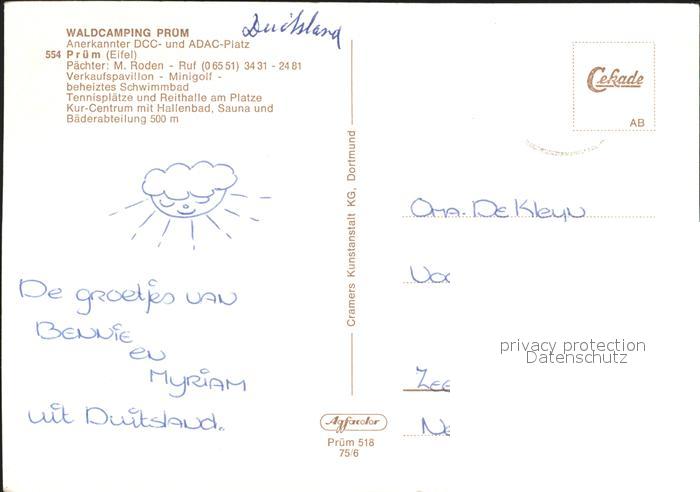 WALDCAMPING PRÜM
Anerkannter DCC- und ADAC-Platz
554 Prüm (Eifel)
Pächter: M. Roden - Ruf (0 65 51) 34 31 - 24 81
Verkaufspavillon - Minigolf -
beheiztes Schwimmbad
Tennisplätze und Reithalle am Platze
Kur-Centrum mit Hallenbad, Sauna und
Bäderabteilung 500 m
Duitsland
De groetjes van
Bennie
en
Myriam
uit Duitsland.
Cramers Kunstanstalt KG, Dortmund
Agfacolor
Prüm 518
75/6
Cekade
AB
Oma. De Kleyn
Zee
Ne
privacy protection
Datenschutz